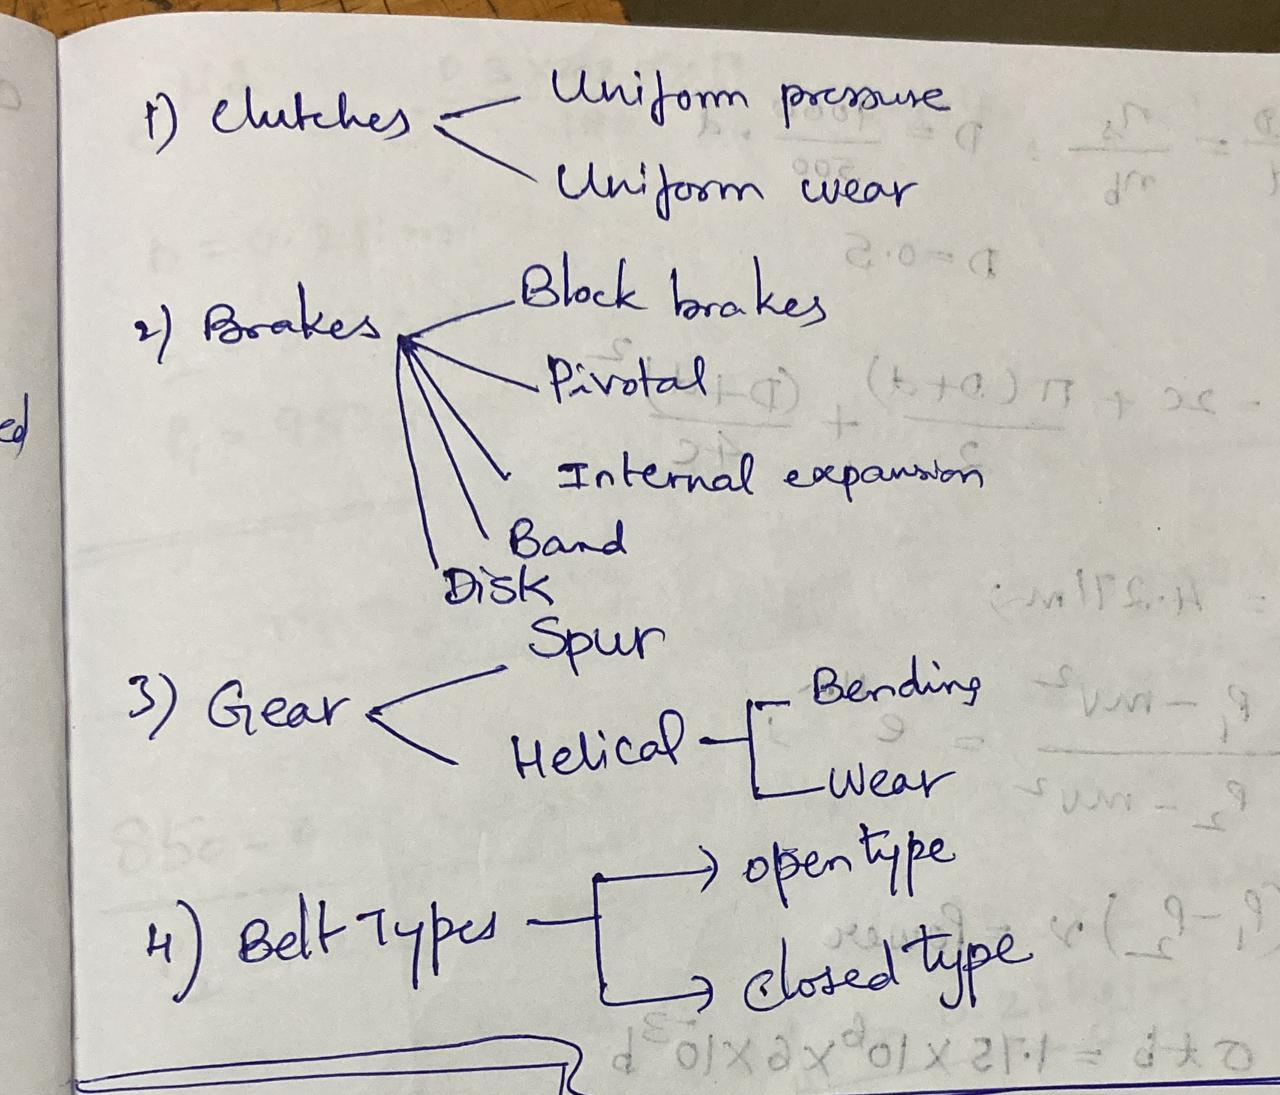 1) Clutches
Uniform pressure
Uniform wear
2) Brakes
Block brakes
Pivotal
Internal expansion
Band
Disk
3) Gear
Spur
Helical
Bending
Wear
4) Belt Types
open type
closed type
ed